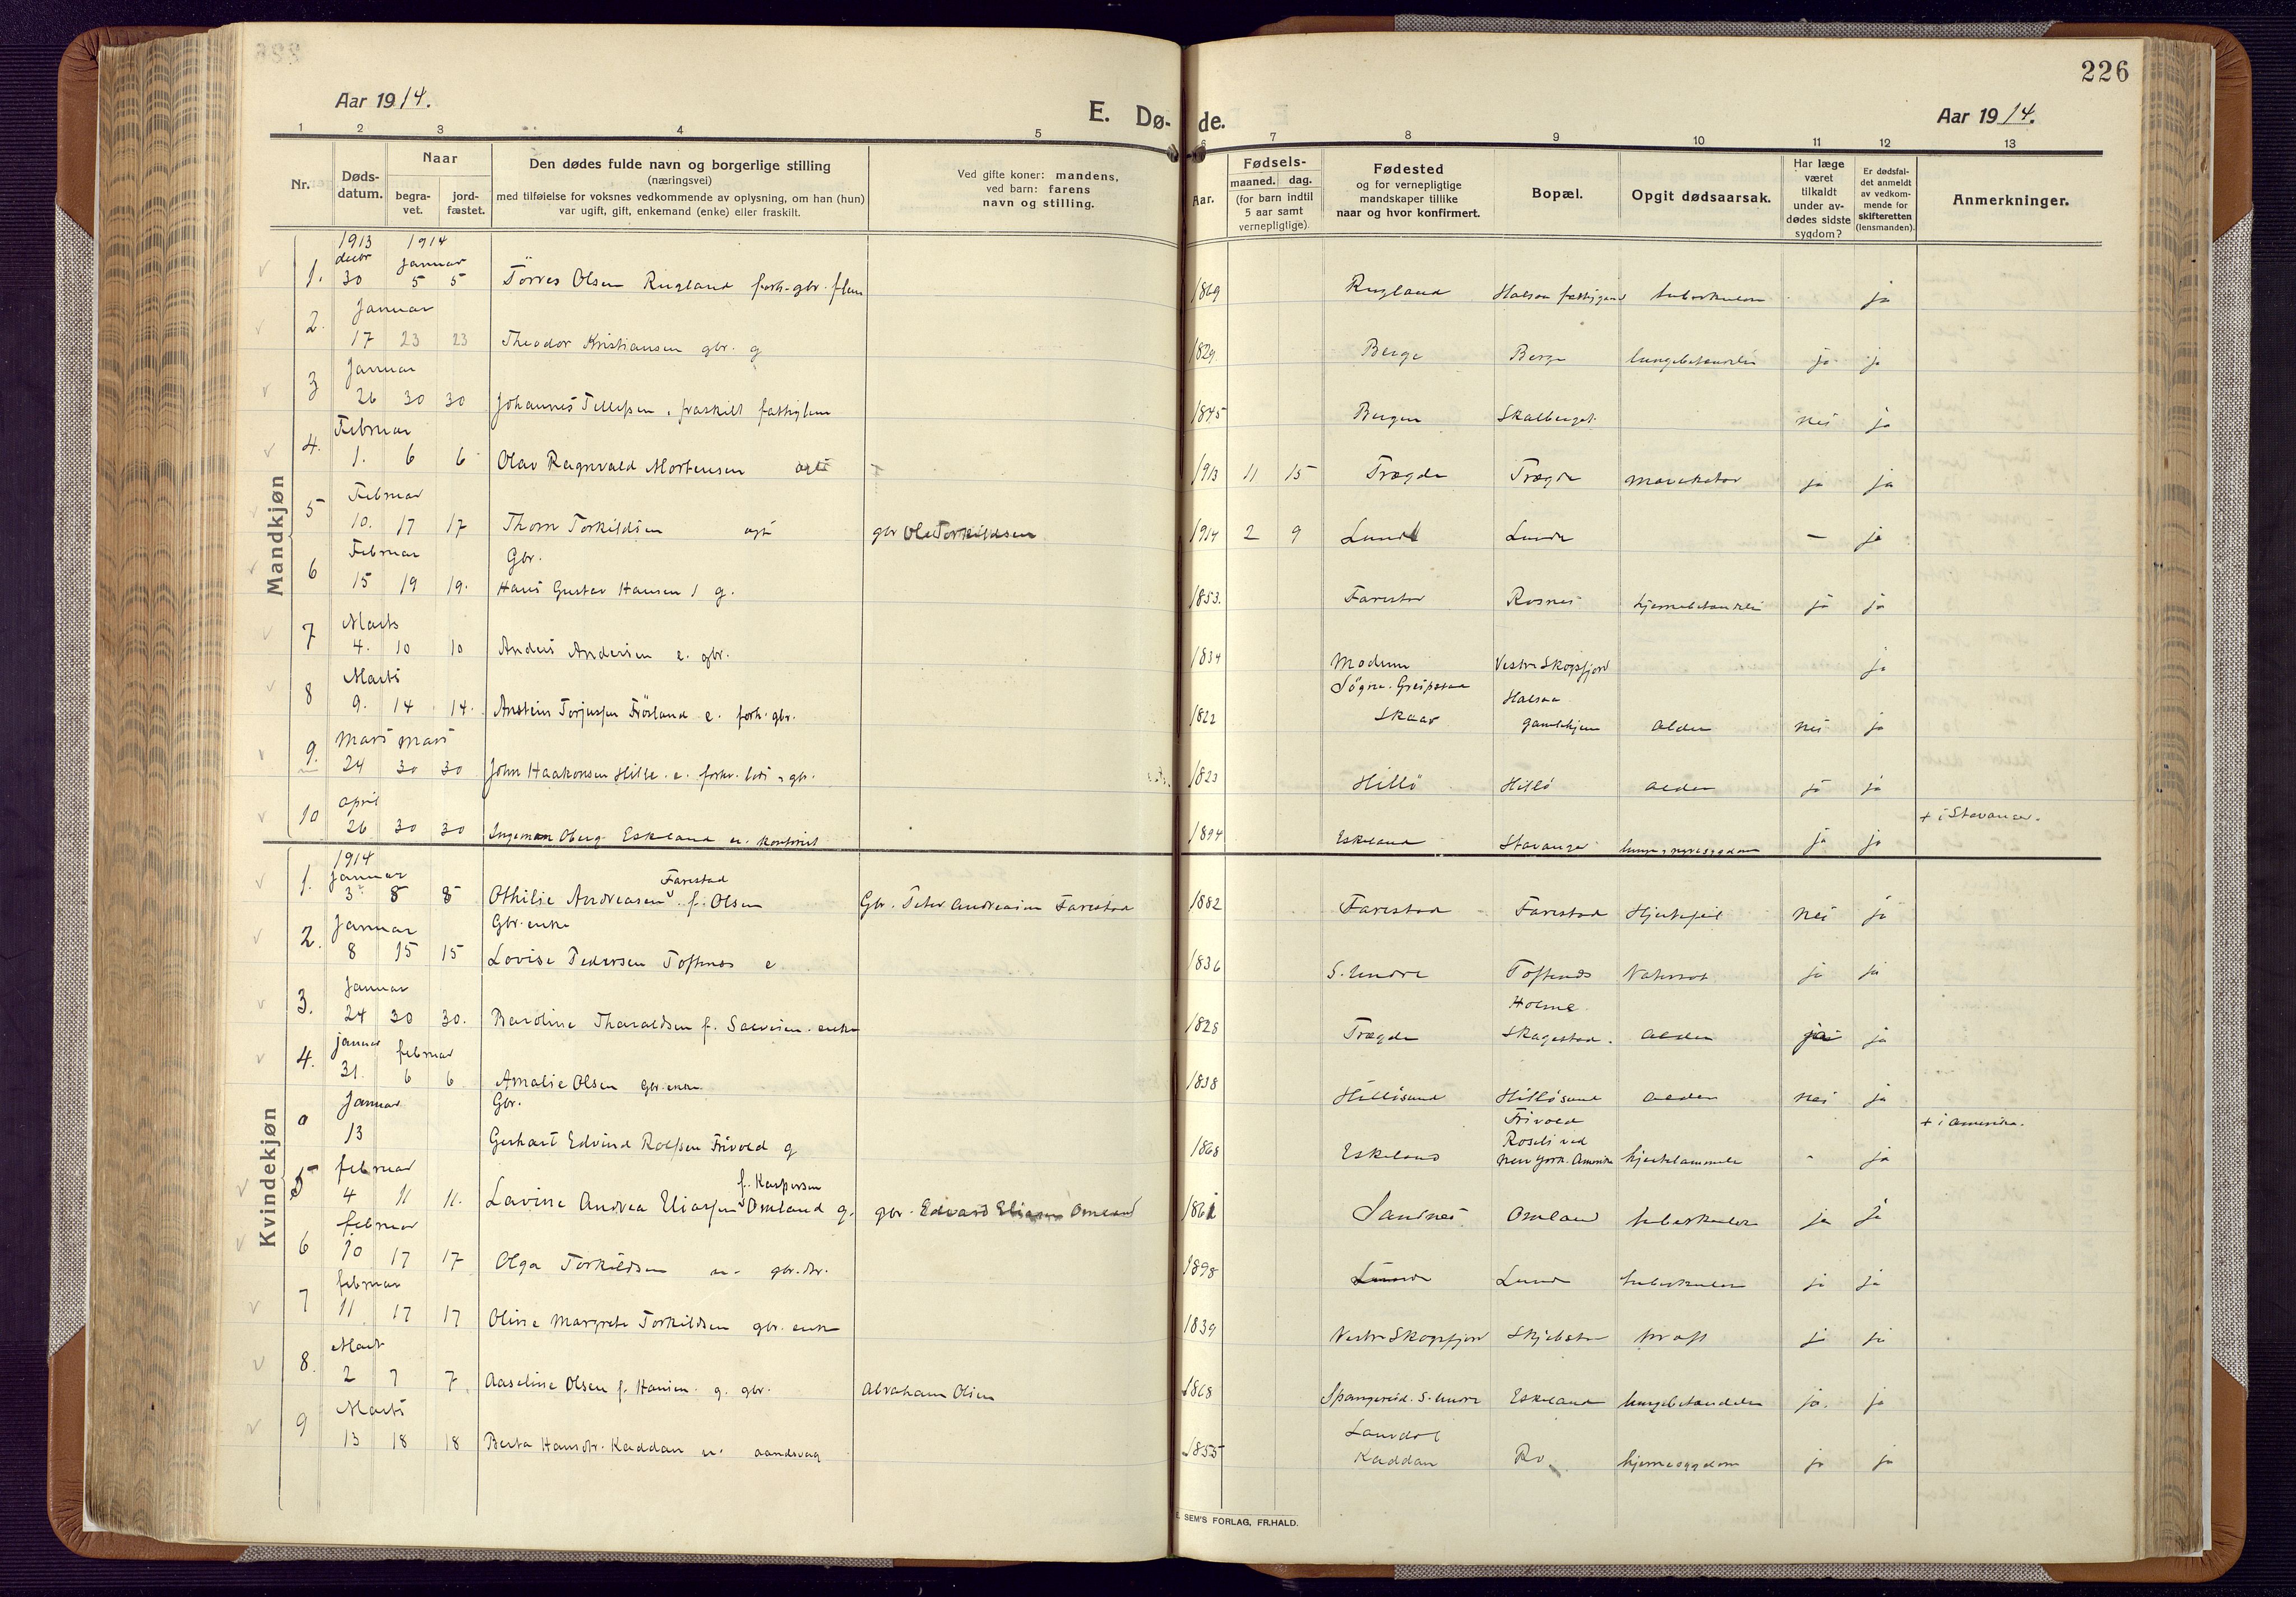 226
Aar 1914.
E. Dø-de.
Aar 1914.
1 2 3 4 5 6 7 8 9 10 11 12 13
Nr.
Døds-datum.
Naar
begra-vet.
jord-fæstet.
Den dødes fulde navn og borgerlige stilling
(næringsvei)
med tilføielse for voksnes vedkommende av oplysning, om han (hun)
var ugift, gift, enkemand (enke) eller fraskilt.
Ved gifte koner: mandens,
ved barn: farens
navn og stilling.
Aar.
Fødsels-
maaned. dag.
(for barn indtil
5 aar samt
vernepligtige).
Fødested
og for vernepligtige
mandskaper tillike
naar og hvor konfirmert.
Bopæl.
Opgit dødsaarsak.
Har læge
været
tilkaldt
under av-
dødes sidste
sygdom?
Er dødsfal-
det anmeldt
av vedkom-
mende for
skifteretten
(lensmanden).
Anmerkninger.
Mandkjøn
1913 1914
decbr januar
1. 30 5 5 Törres Olsen Rugland forh. gbr. 1869 Rugland Halsaa ja
Januar
2. 17 23 23 Theodor Kristiansen gbr. g 1829. Berge Berge lungebetændelse ja ja
Januar
3 26 30 30 Johannes Tellefsen, fraskilt fattiglem 1845 Bergen Skalberget nei ja
Februar
4. 1. 6 6 Olav Ragnvald Mortensen 1913 11 15 Trægde Trægde ja ja
Februar
5 10. 17 17 Thom Torkildsen gbr Ole Torkildsen 1914 2 9 Lunde Lunde – ja
Februar Gbr.
6 15 19 19. Hans Gustav Hansen g. 1853. Farestad Rosnes hjernebetændelse ja ja
Marts
7 4. 10 10 Anders Andersen e. gbr. 1834 Modum Vestre Skogsfjord ja
Marts Søgne. Greipstad Halsaa
8 9. 14 14. Anstein Torjussen Fröisland e. forh. gbr. 1822 Skaar gamlehjem alder nei ja
Mars mars
9. 24 30 30 John Haakonsen Hille. e. forhv. lods, gbr. 1823 Hillö Hillö alder ja ja
april + i Stavanger.
10 26 30 30 Ingeman Oberg Eskeland u. kontorist 1894 Eskeland Stavanger ja ja
Kvindekjøn
1914
Januar Farestad
1. 3 8 8 Othilie Andreasen f. Olsen Gbr. Peter Andreasen Farestad 1882 Farestad Farestad Hjertefeil nei ja
Januar Gbr. enke
2. 8 15 15 Lovise Pedersen Toftenes e 1836 S. Undre Toftenes Vatersot ja ja
Januar Holme
3. 24 30 30. Baroline Tharaldsen f. Salvesen. enke 1828 Trægde Skagestad. alder ja
januar februar
4. 31. 6 6 Amalie Olsen gbr. enke 1838 Hillösund Hillösund alder nei ja
Januar Gbr. Frivold + i amerika.
0 13 Gerhart Edvind Rolfsen Frivold g 1868 Eskeland Roseli ved New York. Amerika hjertelammelse - ja
februar f. Kaspersen
5 4 11 11. Lavine Andrea Eliassen Omland g. gbr. Edvard Eliassen Omland 1861 Sandnes Omland tuberkulose ja ja
februar
6 10 17 17 Olga Torkildsen u. gbr. dr. 1898 Lunde Lunde tuberkulose ja ja
februar
7 11 17 17 Oline Margrete Torkildsen gbr. enke 1839 Vestre Skogsfjord Skjebstad kræft ja ja
Mart
8. 2 7 7. Aaseline Olsen f. Hansen. g. gbr. Abraham Olsen 1868 Spangereid. S. Undre Eskeland lungebetændelse ja. ja
Marts Laudal
9 13 18 18 Berta Hansdtr. Kaddan u. aandsvag 1855 Kaddan Ro hjernesygdom ja ja
E. SEM'S FORLAG, FR.HALD.